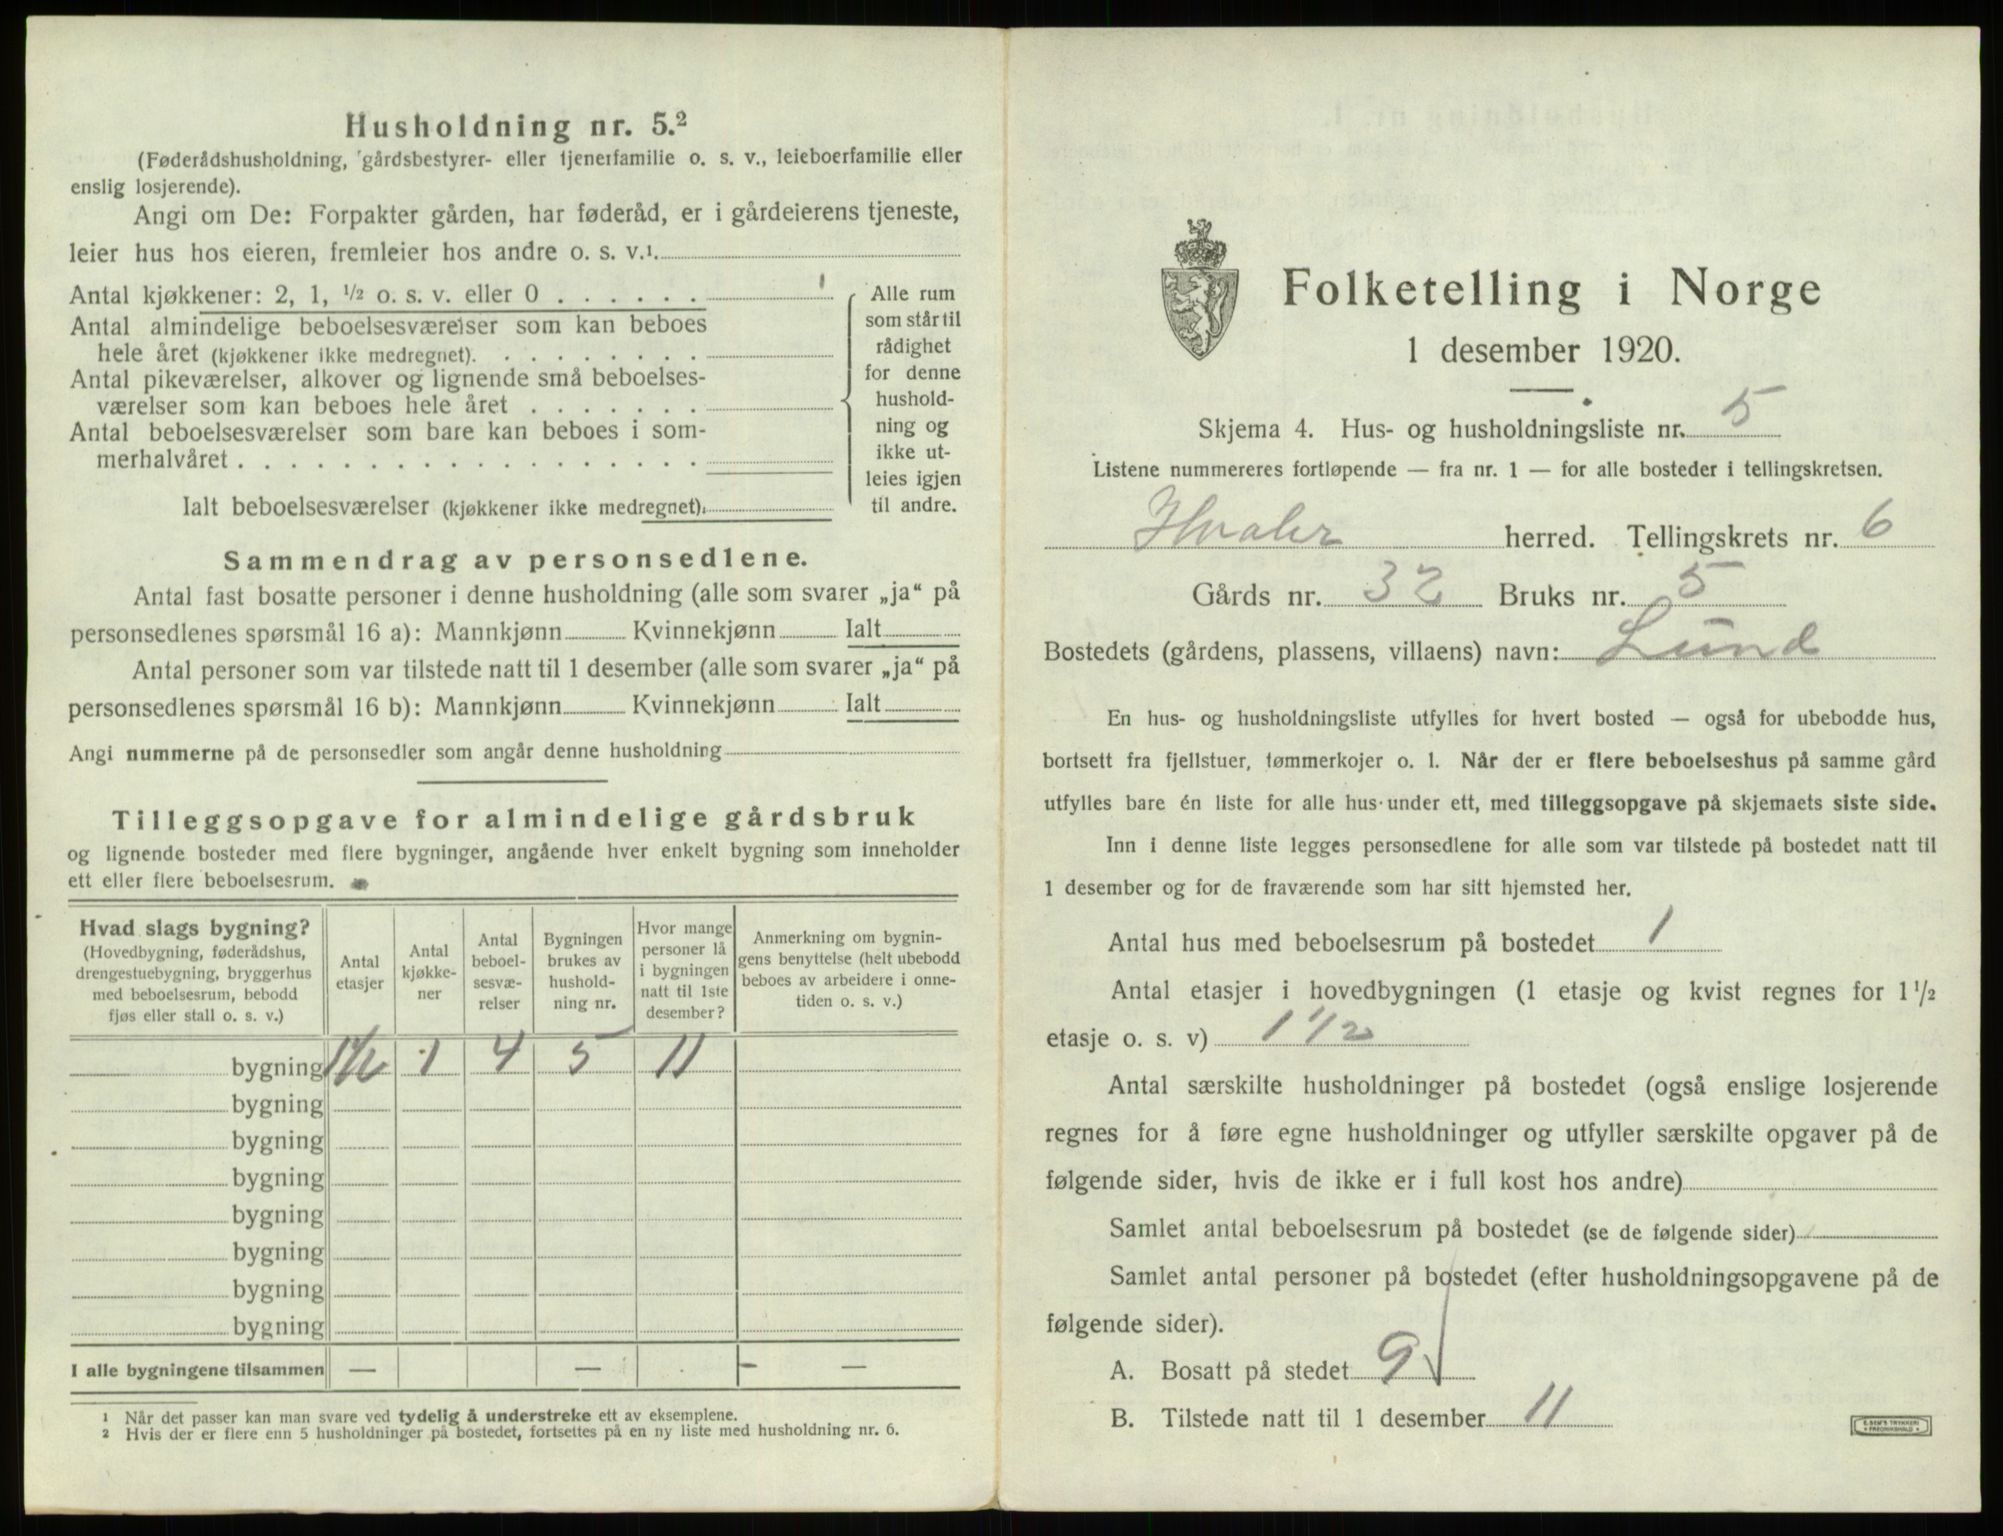 Husholdning nr. 5.²
(Føderådshusholdning, gårdsbestyrer- eller tjenerfamilie o. s. v., leieboerfamilie eller
enslig losjerende).
Angi om De: Forpakter gården, har føderåd, er i gårdeierens tjeneste,
leier hus hos eieren, fremleier hos andre o. s. v.¹
Antal kjøkkener: 2, 1, ½ o. s. v. eller 0 . . . . . .
Antal almindelige beboelsesværelser som kan beboes
hele året (kjøkkener ikke medregnet). . . . . . . . .
Antal pikeværelser, alkover og lignende små beboelses-
værelser som kan beboes hele året . . . . . . .
Antal beboelsesværelser som bare kan beboes i som-
merhalvåret . . . . . . . . . . . . . . . . . .
Ialt beboelsesværelser (kjøkkener ikke medregnet).
Alle rum
som står til
rådighet
for denne
hushold-
ning og
ikke ut-
leies igjen
til andre.
Sammendrag av personsedlene.
Antal fast bosatte personer i denne husholdning (alle som svarer „ja“ på
personsedlenes spørsmål 16 a): Mannkjønn Kvinnekjønn Ialt
Antal personer som var tilstede natt til 1 desember (alle som svarer „ja“ på
personsedlenes spørsmål 16 b): Mannkjønn Kvinnekjønn Ialt
Angi nummerne på de personsedler som angår denne husholdning
Tilleggsopgave for almindelige gårdsbruk
og lignende bosteder med flere bygninger, angående hver enkelt bygning som inneholder
ett eller flere beboelsesrum.
Hvad slags bygning?
(Hovedbygning, føderådshus,
drengestuebygning, bryggerhus
med beboelsesrum, bebodd
fjøs eller stall o. s. v.)
Antal
etasjer
Antal
kjøkke-
ner
Antal
beboel-
sesvæ-
relser
Bygningen
brukes av
hushold-
ning nr.
Hvor mange
personer lå
i bygningen
natt til 1ste
desember?
Anmerkning om bygnin-
gens benyttelse (helt ubebodd
beboes av arbeidere i onne-
tiden o. s. v.)
bygning 1½ 1 4 5 11
bygning
bygning
bygning
bygning
bygning
bygning
bygning
I alle bygningene tilsammen — — — —
¹ Når det passer kan man svare ved tydelig å understreke ett av eksemplene.
² Hvis der er flere enn 5 husholdninger på bostedet, fortsettes på en ny liste med husholdning nr. 6.
Folketelling i Norge
1 desember 1920.
Skjema 4. Hus- og husholdningsliste nr. 5
Listene nummereres fortløpende — fra nr. 1 — for alle bosteder i tellingskretsen.
Hvaler herred. Tellingskrets nr. 6
Gårds nr. 32 Bruks nr. 5
Bostedets (gårdens, plassens, villaens) navn: Lund
En hus- og husholdningsliste utfylles for hvert bosted — også for ubebodde hus,
bortsett fra fjellstuer, tømmerkojer o. l. Når der er flere beboelseshus på samme gård
utfylles bare én liste for alle hus under ett, med tilleggsopgave på skjemaets siste side.
Inn i denne liste legges personsedlene for alle som var tilstede på bostedet natt til
1 desember og for de fraværende som har sitt hjemsted her.
Antal hus med beboelsesrum på bostedet 1
Antal etasjer i hovedbygningen (1 etasje og kvist regnes for 1½
etasje o. s. v) 1½
Antal særskilte husholdninger på bostedet (også enslige losjerende
regnes for å føre egne husholdninger og utfyller særskilte opgaver på de
følgende sider, hvis de ikke er i full kost hos andre)
Samlet antal beboelsesrum på bostedet (se de følgende sider)
Samlet antal personer på bostedet (efter husholdningsopgavene på de
følgende sider).
A. Bosatt på stedet 9
B. Tilstede natt til 1 desember 11
E. SEM'S TRYKKERI
FREDRIKSHALD